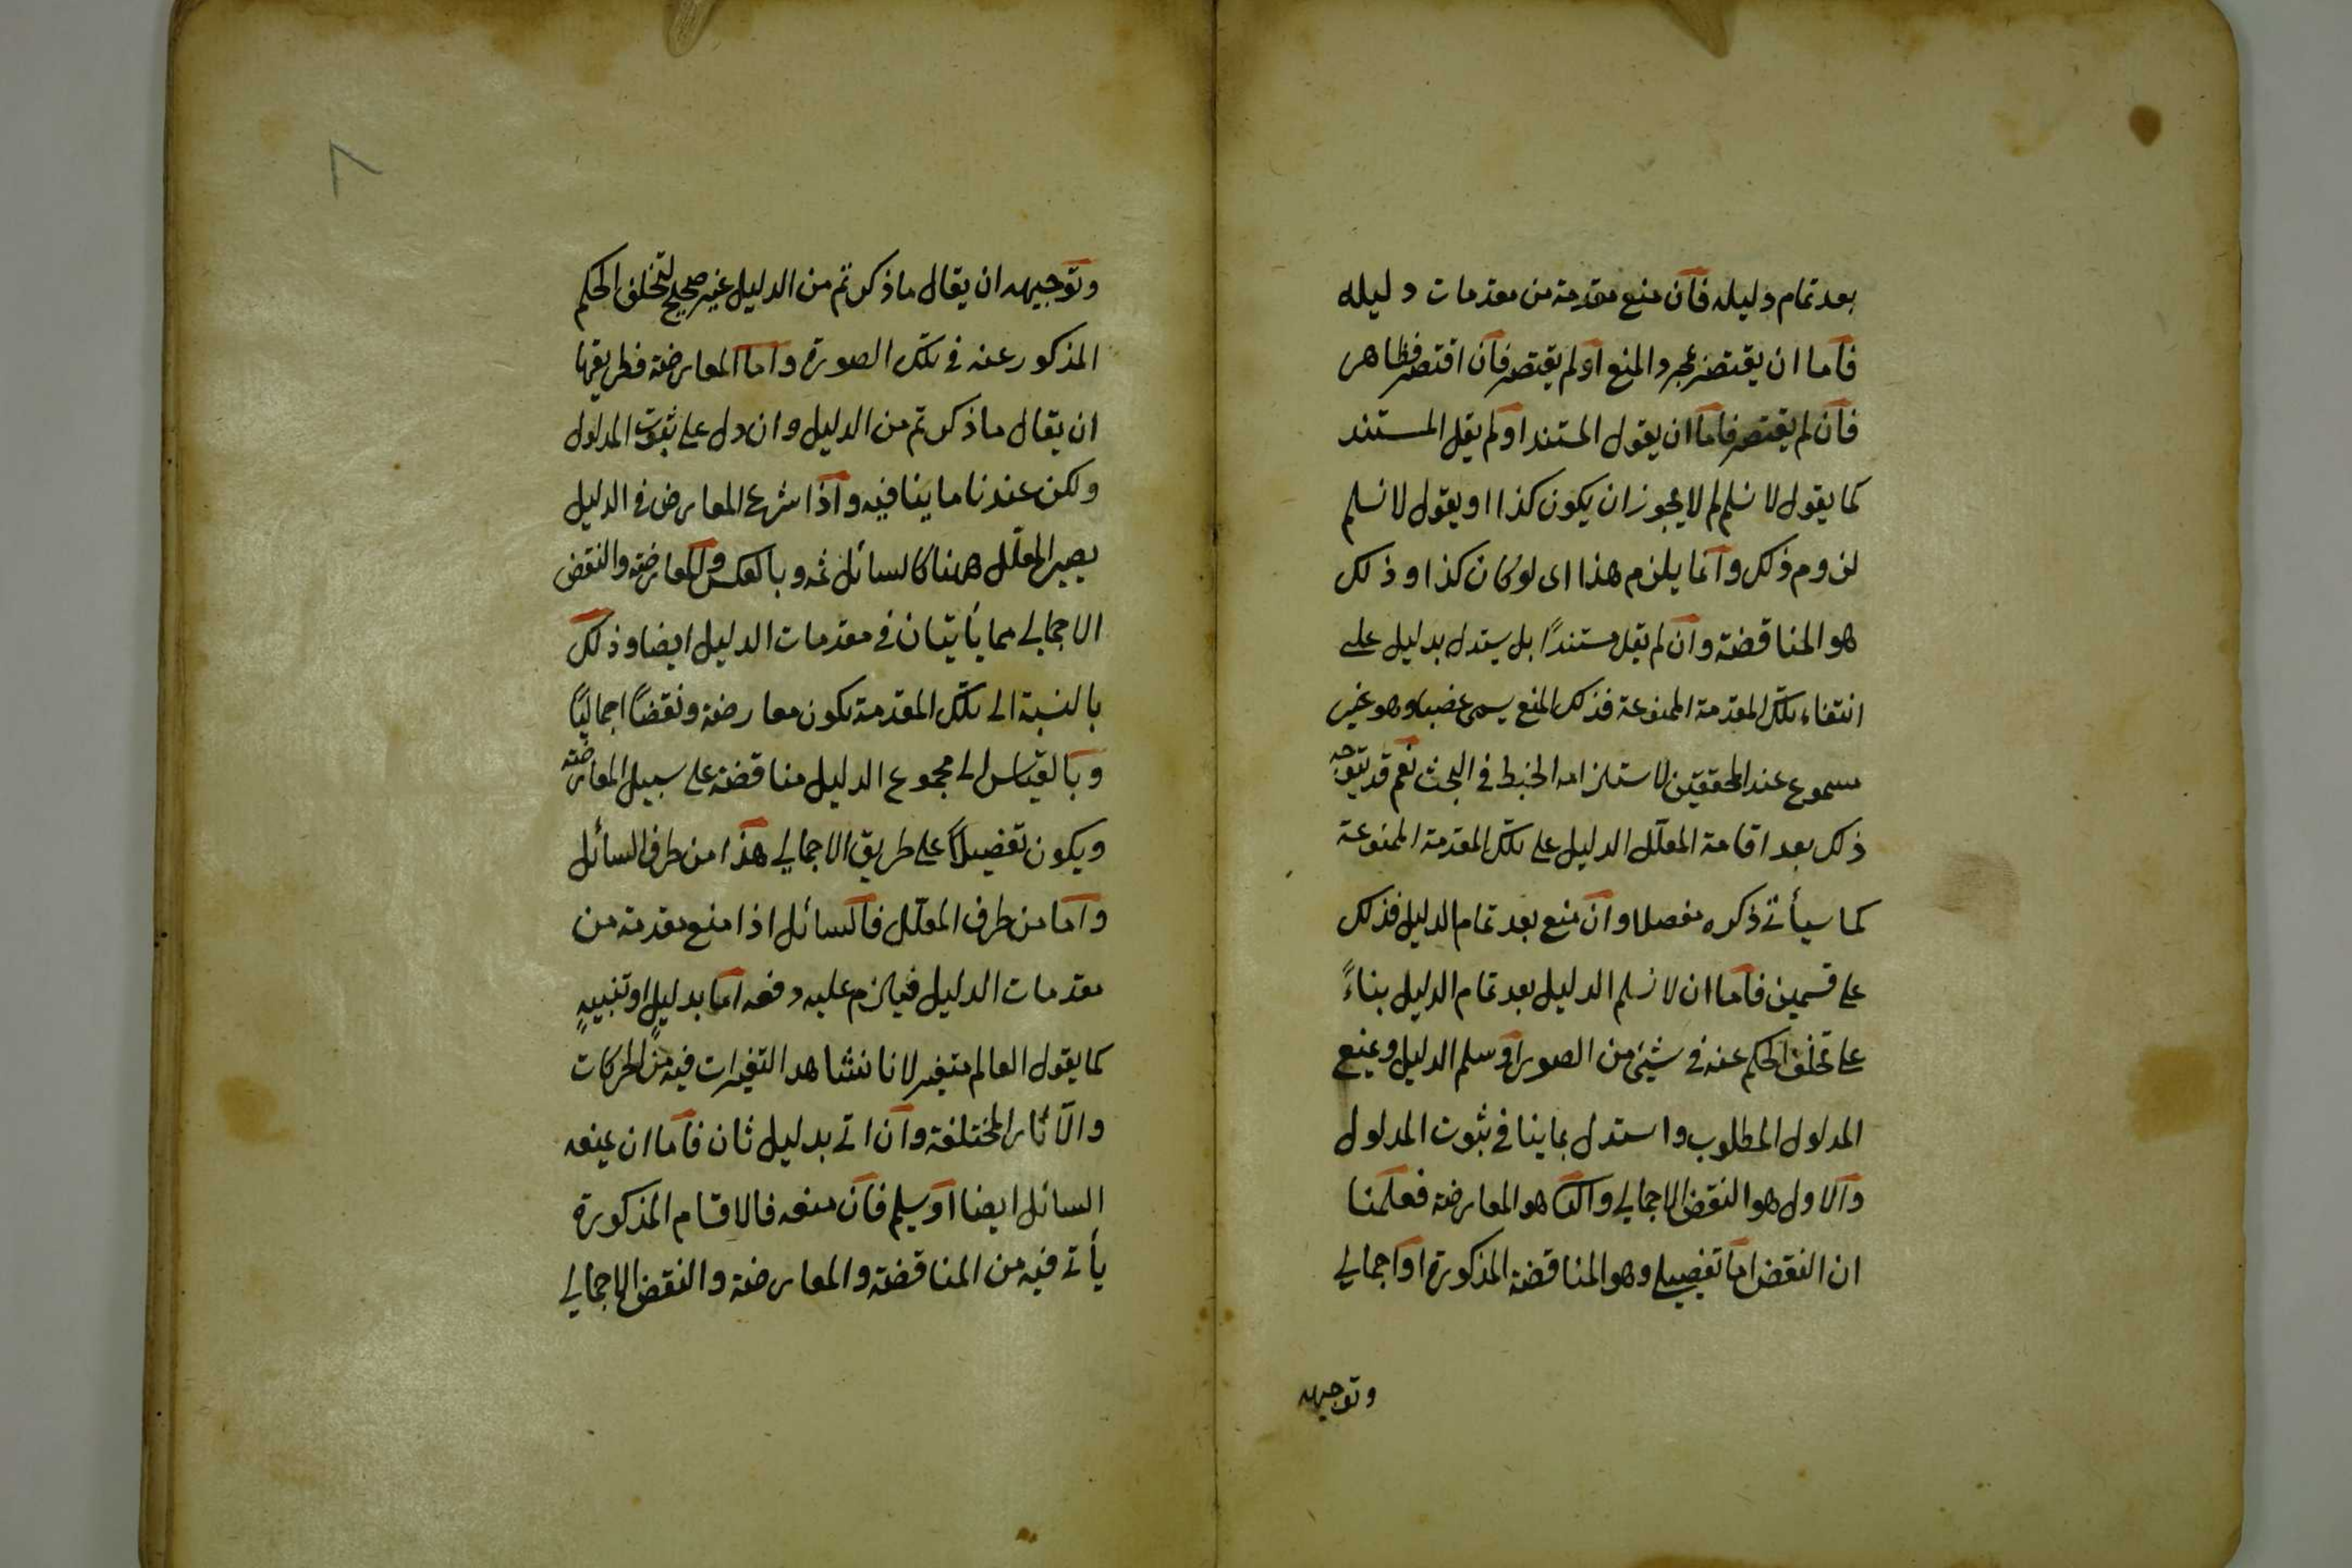 بعد تمام دليله فان منع مقدمة من مقدمات دليله
فاما ان يقتصر بمجرد المنع او لم يقتصر فان اقتصر فظاهر
فان لم يقتصر فاما ان يقول المستند او لم يقل المستند
كما يقول لا نسلم لم لا يجوز ان يكون كذا او يقول لا نسلم
لزوم ذلك وانما يلزم هذا اى لو كان كذا وذلك
هو المناقضة وان لم يقل مستندًا بل يستدل بدليل على
انتفاء تلك المقدمة الممنوعة فذلك المنع يسمى غصبا وهو غير
مسموع عند المحققين لاستلزامه الخبط في البحث نعم قد يتوجه
ذلك بعد اقامة المعلّل الدليل على تلك المقدمة الممنوعة
كما سيأتي ذكره مفصلا وان منع بعد تمام الدليل فذلك
على قسمين فاما ان لا نسلم الدليل بعد تمام الدليل بناءً
على تخلف الحكم عنه في شيئ من الصور او سلم الدليل ويمنع
المدلول المطلوب واستدل بما ينافي ثبوت المدلول
والاول هو النقض الاجمالي والثا هو المعارضة فعلمنا
ان النقض اما تفصيلي وهو المناقضة المذكورة او اجمالي
وتوجيهه
٨
وتوجيهه ان يقال ما ذكرتم من الدليل غير صحيح لتخلف الحكم
المذكور عنه في تلك الصورة واما المعارضة فطريقها
ان يقال ما ذكرتم من الدليل وان دل على ثبوت المدلول
ولكن عندنا ما ينافيه واذا شرع المعارض في الدليل
يصير المعلّل ههنا كالسائل ثمه وبالعكس والمعارضة والنقض
الاجمالي مما يأتيان في مقدمات الدليل ايضا وذلك
بالنسبة الى تلك المقدمة تكون معارضة ونقضًا اجماليًا
وبالقياس الى مجموع الدليل مناقضة على سبيل المعارضة
ويكون تفصيلاً على طريق الاجمالي هذا من طرف السائل
واما من طرف المعلّل فالسائل اذا منع مقدمة من
مقدمات الدليل فيلزم عليه دفعه اما بدليلٍ او تنبيهٍ
كما يقول العالم متغير لانا نشاهد التغيرات فيه من الحركات
والآثار المختلفة وان اتى بدليل ثان فاما ان يمنعه
السائل ايضا او يسلم فان منعه فالاقسام المذكورة
يأتي فيه من المناقضة والمعارضة والنقض الاجمالي